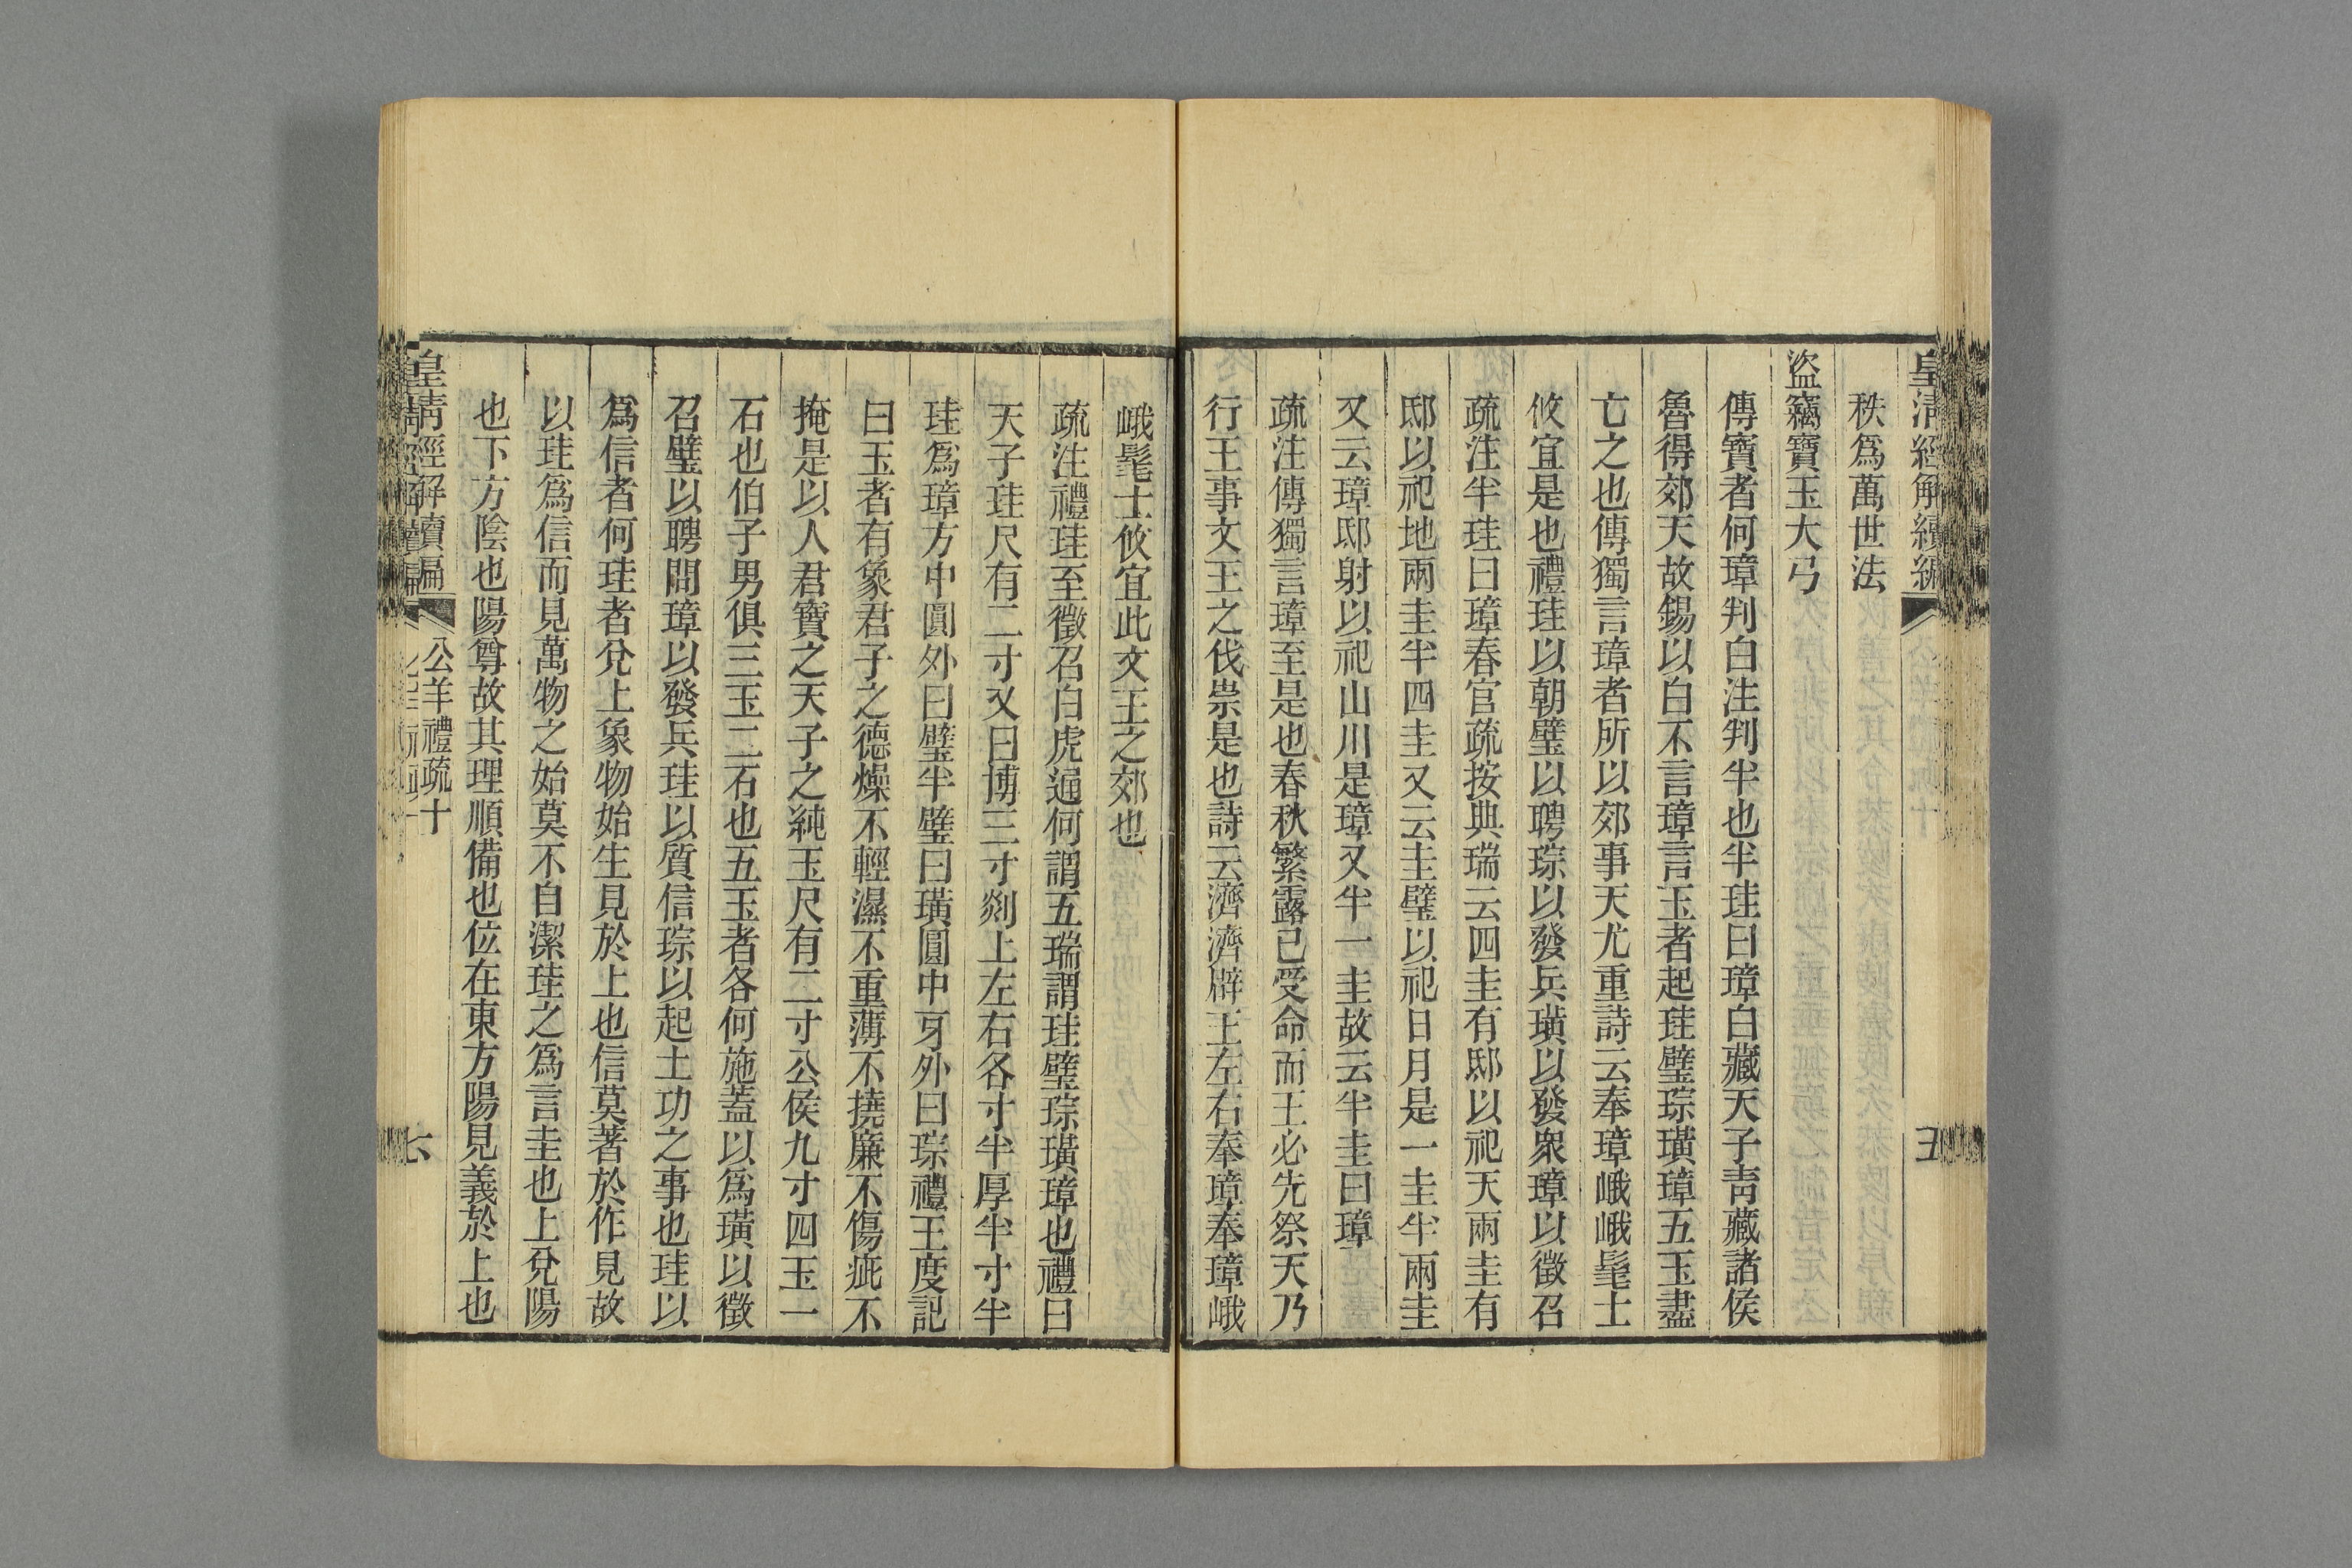 皇清經解續編
五
秩爲萬世法
盜竊寶玉大弓
傳寶者何璋判白注判半也半珪曰璋白藏天子靑藏諸侯
魯得郊天故錫以白不言璋言玉者起珪璧琮璜璋五玉盡
亡之也傳獨言璋者所以郊事天尤重詩云奉璋峨峨髦士
攸宜是也禮珪以朝璧以聘琮以發兵璜以發衆璋以徵召
疏注半珪曰璋春官疏按典瑞云四圭有邸以祀天兩圭有
邸以祀地兩圭半四圭又云圭璧以祀日月是一圭半兩圭
又云璋邸射以祀山川是璋又半一圭故云半圭曰璋
疏注傳獨言璋至是也春秋繁露已受命而王必先祭天乃
行王事文王之伐崇是也詩云濟濟辟王左右奉璋奉璋峨
峨髦士攸宜此文王之郊也
疏注禮珪至徵召白虎通何謂五瑞謂珪璧琮璜璋也禮曰
天子珪尺有二寸又曰博三寸剡上左右各寸半厚半寸半
珪爲璋方中圓外曰璧半璧曰璜圓中牙外曰琮禮王度記
曰玉者有象君子之德燥不輕濕不重薄不撓廉不傷疵不
掩是以人君寶之天子之純玉尺有二寸公侯九寸四玉一
石也伯子男俱三玉二石也五玉者各何施蓋以爲璜以徵
召璧以聘問璋以發兵珪以質信琮以起土功之事也珪以
爲信者何珪者兌上象物始生見於上也信莫著於作見故
以珪爲信而見萬物之始莫不自潔珪之爲言圭也上兌陽
也下方陰也陽尊故其理順備也位在東方陽見義於上也
皇清經解續編
公羊禮疏十
七